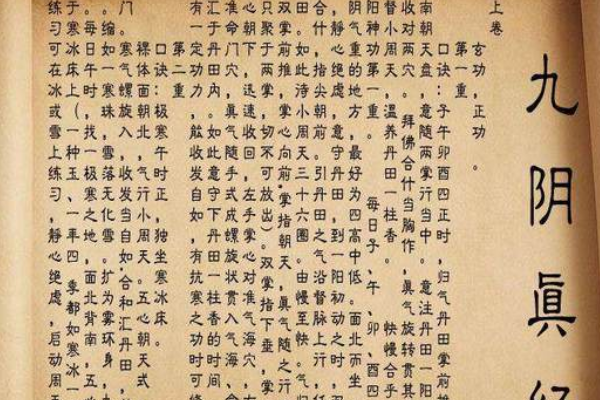 九阴眞经
上卷
玄功，正功。
第一重
口诀：子午卯酉四正时，归气丹田掌前
南朝天盘，意随两掌行当中。意注丹田一阳
收对两穴。拜佛合什当胸作，眞气旋转贯其
督小周天，温养丹田一柱香。快慢合乎
阳神功第一重。每日子、午、卯、酉四
阴气 的地方，最好为四高中低。面北而坐
静心绝虑，意守丹田，到一阳初动之时，
什，指尖朝前。引丹田之气沿督脉上行，任
合，如此待小周天三十六圈。由慢至快。气归
双掌前推，掌心向前，掌指朝天，眞气随之行
只聚于两掌，切不可放出）。双掌指下垂，掌
心朝下，迅速收回，左手掌心对准气海穴，右
准命门穴，眞气随手式成螺旋状贯入气海、命
汇于丹田内。如此意守丹田一柱香的时间
有一定功力，能收发自如，有抗寒之功时可
第二重
口诀：极寒午时正，独坐寒冰床。
裸体面朝北，气行小周天。五心朝天式
门。寒气螺旋入，收发当自如。合和汇丹田，
缩如寒珠，雪落无化雪。扩为雾环身，
。每日午时，找一极寒之地，面北背南，五心
于寒冰床上（一种玉、一年四季都如寒冰一
练习可在冰或雪上练习，静心绝虑，启动周天